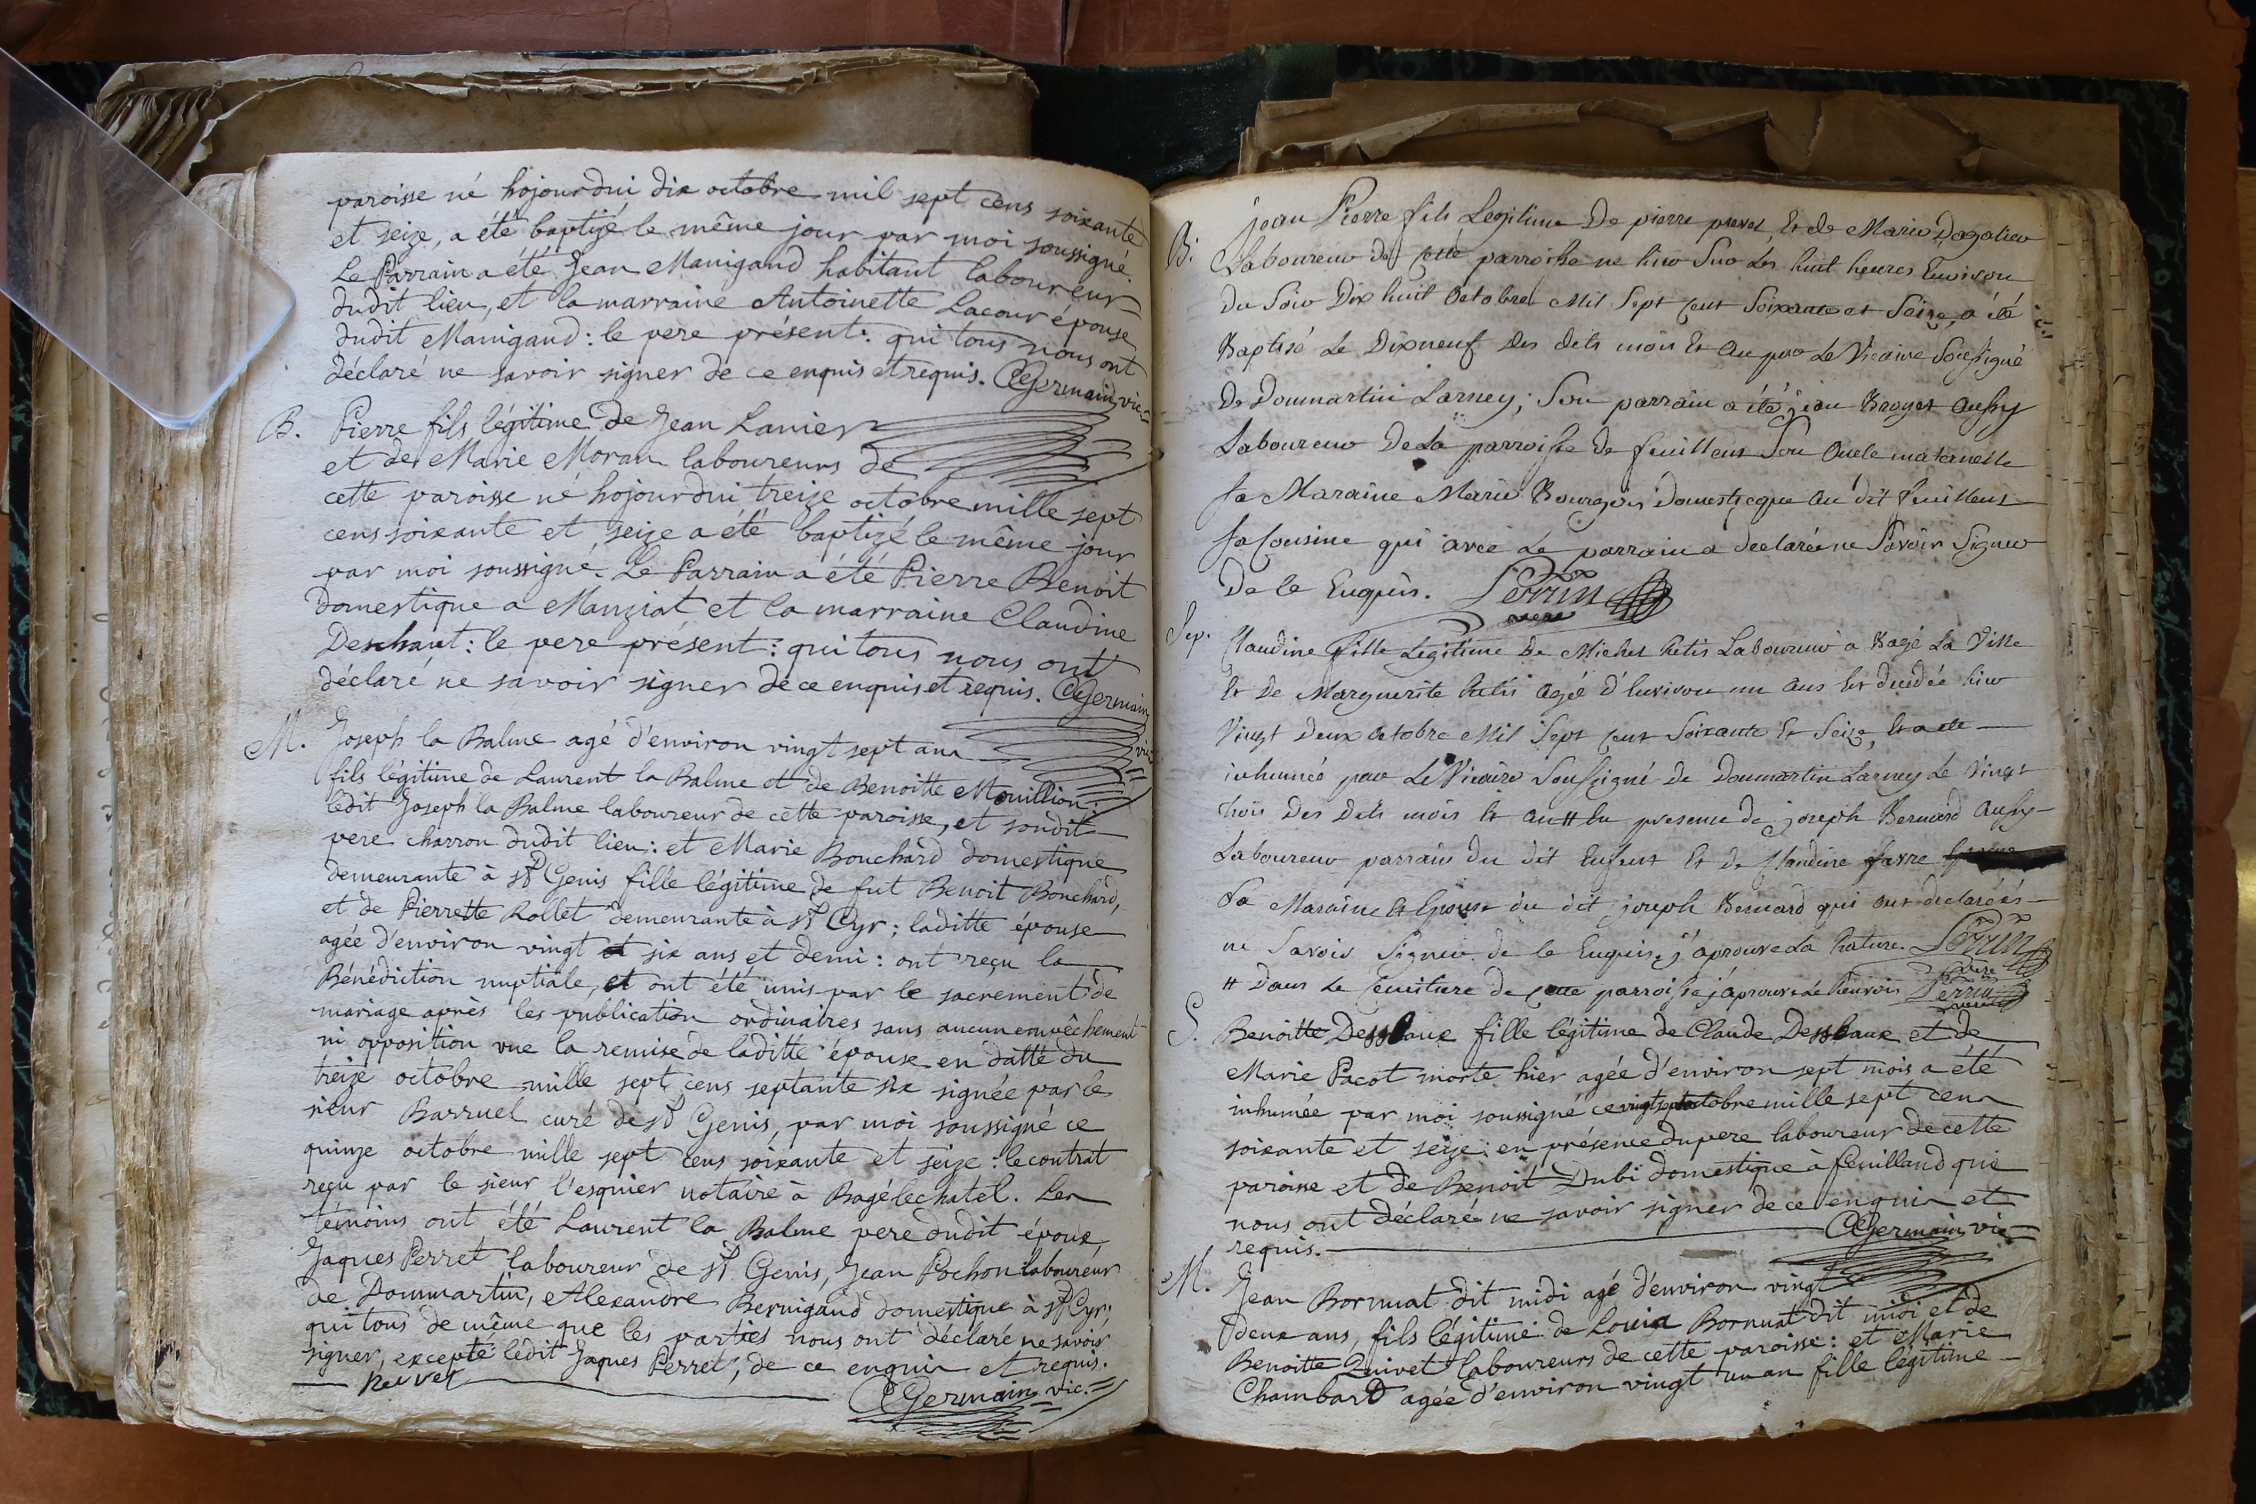 paroisse né hojourdui dix octobre mil sept cens soixante
et seize, a été baptizé le même jour par moi soussigné.
Le Parrain a été Jean Manigand habitant laboureur
dudit lieu, et la marraine Antoinette Lacour épouse
dudit Manigand : le pere présent : qui tous nous ont
déclaré ne savoir signer de ce enquis et requis. CGermain vic
B. Pierre fils légitime de Jean Lanier
et de Marie Moran laboureurs de
cette paroisse né hojourdui treize octobre mille sept
cens soixante et seize a été baptizé le même jour
par moi soussigné. Le Parrain a été Pierre Benoit
domestique a Manziat et la marraine Claudine
Deschaut : le pere présent : qui tous nous ont
déclaré ne savoir signer de ce enquis et requis. CGermain
vic
M. Joseph la Balme agé d'environ vingt sept ans
fils légitime de Laurent la Balme et de Benoitte Mouillion :
ledit Joseph la Balme laboureur de cette paroisse, et sondit
pere charron dudit lieu : et Marie Bouchard domestique
demeurante à St Genis fille légitime de fut Benoit Bouchard,
et de Pierrette Rollet demeurante à St Cyr ; laditte épouse
agée d'environ vingt et six ans et demi : ont reçu la
Bénédiction nuptiale, et ont été unis par le sacrement de
mariage après les publication ordinaires sans aucun empêchement
ni opposition vue la remise de laditte épouse en datte du
treize octobre mille sept cens septante six signée par le
sieur Barruel curé de St Genis, par moi soussigné ce
quinze octobre mille sept cens soixante et seize : le contrat
reçu par le sieur l'esquier notaire à Bagé lechatel. Les
témoins ont été Laurent la Balme pere dudit époux
Jaques Perret laboureur de St Genis, Jean Pochon laboureur
de Dommartin, Alexandre Bernigaud domestique à St Cyr ;
qui tous de même que les parties nous ont déclaré ne savoir
signer, excepté ledit Jaques Perret, de ce enquis et requis.
CGermain vic.
B. jean Pierre fils Legitime De pierre prevet Et de Marie Dagalier
Laboureur de cette parroisse ne hier Sur Les huit heures Environ
du Soir Dix huit Octobre Mil Sept cent Soixante et Seize, a été
Baptisé Le Dixneuf Des dits mois Et An par Le Vicaire Soussigné
De Dommartin Larney ; Son parrain a été jean Broyer Aussy
Laboureur De La parroisse De feuillent Son Oncle maternelle
Sa Maraine Marie Bourgois Domesticque Au dit feuillent
Sa Cousine qui avec Le parrain a declaré ne Savoir Signer
De ce Enquis. Perrin
Sep. Claudine fille Legitime De Michel Petit Laboureur a Bagé La Ville
Et De Marguerite Petit agée d'Environ un Ans Est decédée hier
Vingt Deux Octobre Mil Sept cent Soixante Et Seize, Et a été
inhumée par Le Vicaire Soussigné De Dommartin Larney Le Vingt
trois Des Dits mois Et An # En presence de joseph Bernard Aussy
Laboureur parrain du dit Enfent Et De Claudine favre
Sa Maraine Et Epouse du dit joseph Bernard qui ont declarés
ne Savoir Signer de ce Enquis j'aprouve La Rature. Perrin
# Dans Le Cemitiere de cette parroisse j'aprouve Le Renvois Perrin
S. Benoitte Dessbaux fille légitime de Claude Dessbaux et de
Marie Pacot morte hier agée d'environ sept mois a été
inhumée par moi soussigné ce vingtsept octobre mille sept cens
soixante et seize : en présence du pere laboureur de cette
paroisse et de Benoit Dubi domestique à feuilland qui
nous ont déclaré ne savoir signer de ce enquis et
requis. CGermain vic
M. Jean Bornuat dit midi agé d'environ vingt
deux ans, fils légitime de Louis Bornuat dit midi et de
Benoitte Quivet laboureurs de cette paroisse : et Marie
Chambard agée d'environ vingt un an fille légitime